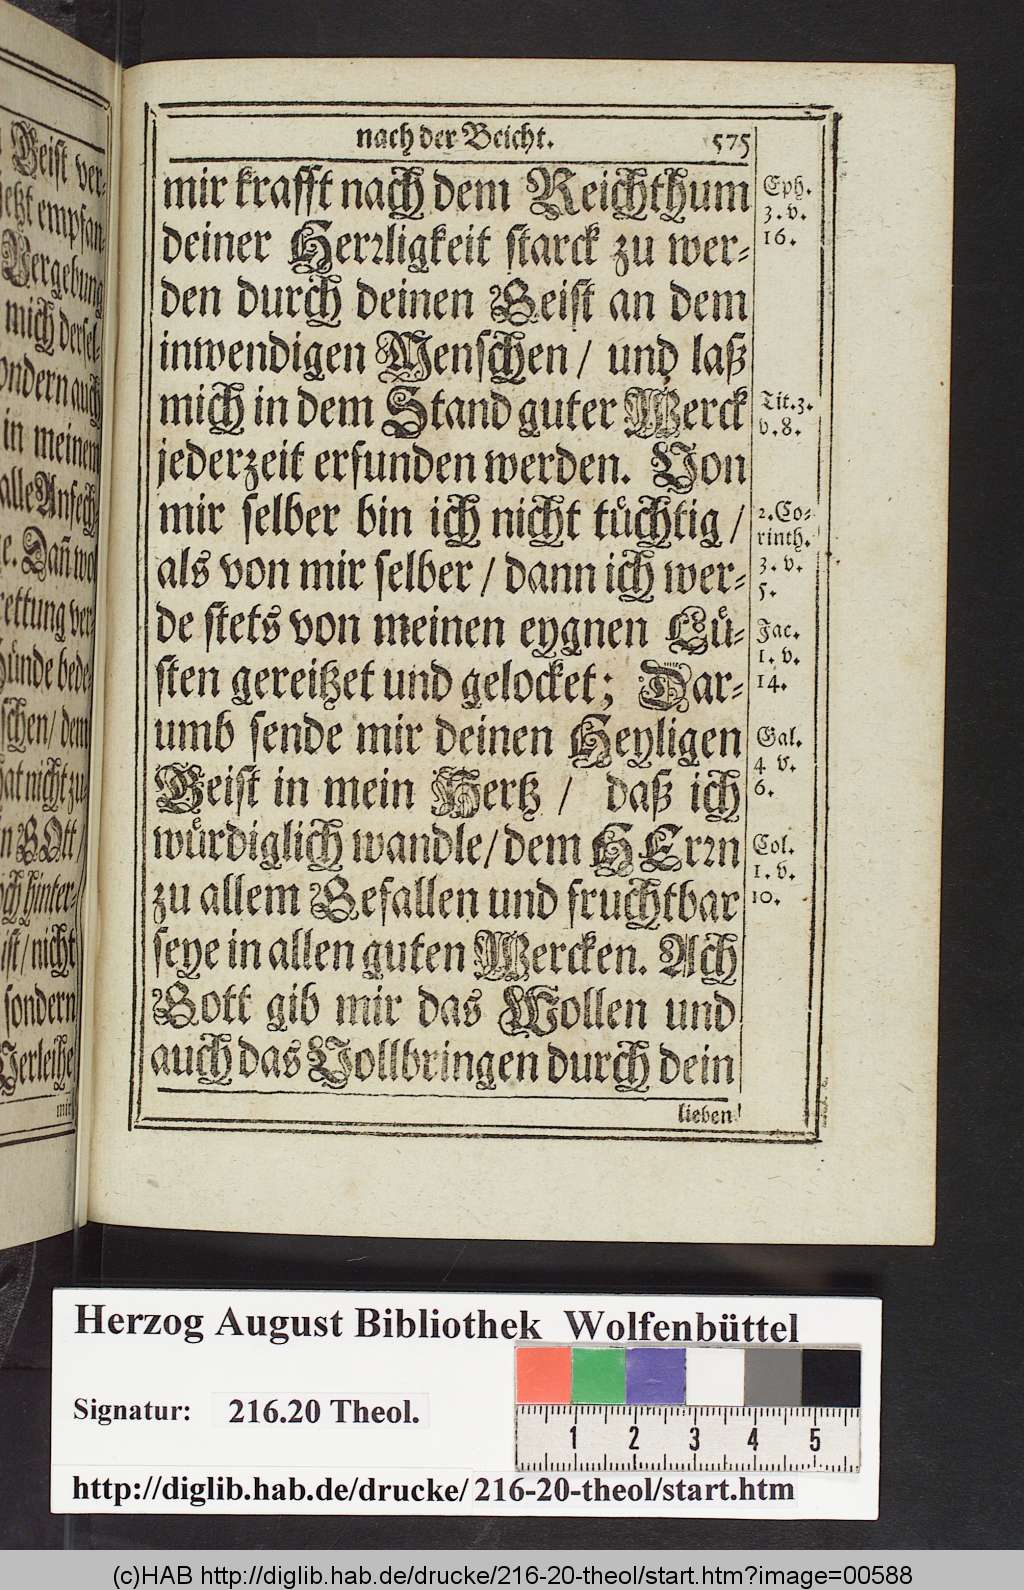 nach der Beicht. 575
mir krafft nach dem Reichthum
deiner Herꝛligkeit starck zu wer-
den durch deinen Geist an dem
inwendigen Menschen / und laß
mich in dem Stand guter Werck
jederzeit erfunden werden. Von
mir selber bin ich nicht tüchtig /
als von mir selber / dann ich wer-
de stets von meinen eygnen Lü-
sten gereitzet und gelocket; Dar-
umb sende mir deinen Heyligen
Geist in mein Hertz / daß ich
würdiglich wandle / dem HErꝛn
zu allem Gefallen und fruchtbar
seye in allen guten Wercken. Ach
Gott gib mir das Wollen und
auch das Vollbringen durch dein
lieben
Eph.
3. v.
16.
Tit. 3.
v. 8.
2. Co-
rinth.
3. v.
5.
Jac.
1. v.
14.
Gal.
4 v.
6.
Col.
1. v.
10.
Geist ver-
jetzt empfan-
Vergebung
mich dersel-
sondern auch
in meinem
alle Anfech-
Dañ wo
rettung ver-
Sünde bede-
schen / dem
hat nicht zu
GOtt /
hinter-
ist / nicht
sondern
Verleihe
mir
Herzog August Bibliothek Wolfenbüttel
Signatur: 216.20 Theol.
1 2 3 4 5
http://diglib.hab.de/drucke/ 216-20-theol/start.htm
(c)HAB http://diglib.hab.de/drucke/216-20-theol/start.htm?image=00588